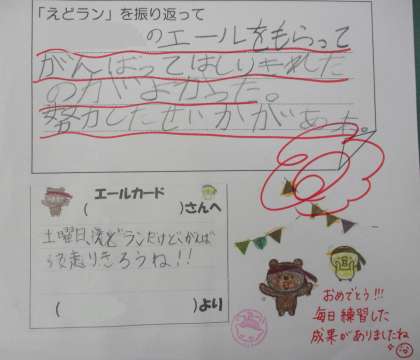 「えどラン」を振り返って
のエールをもらって
がんばってはしりきれた
のがよかった。
努力したせいかがあった。
エールカード
(            )さんへ
土曜日、えどランだけど、がんば
走りきろうね!!
(            )より
おめでとう!!!
毎日練習した
成果がありましたね